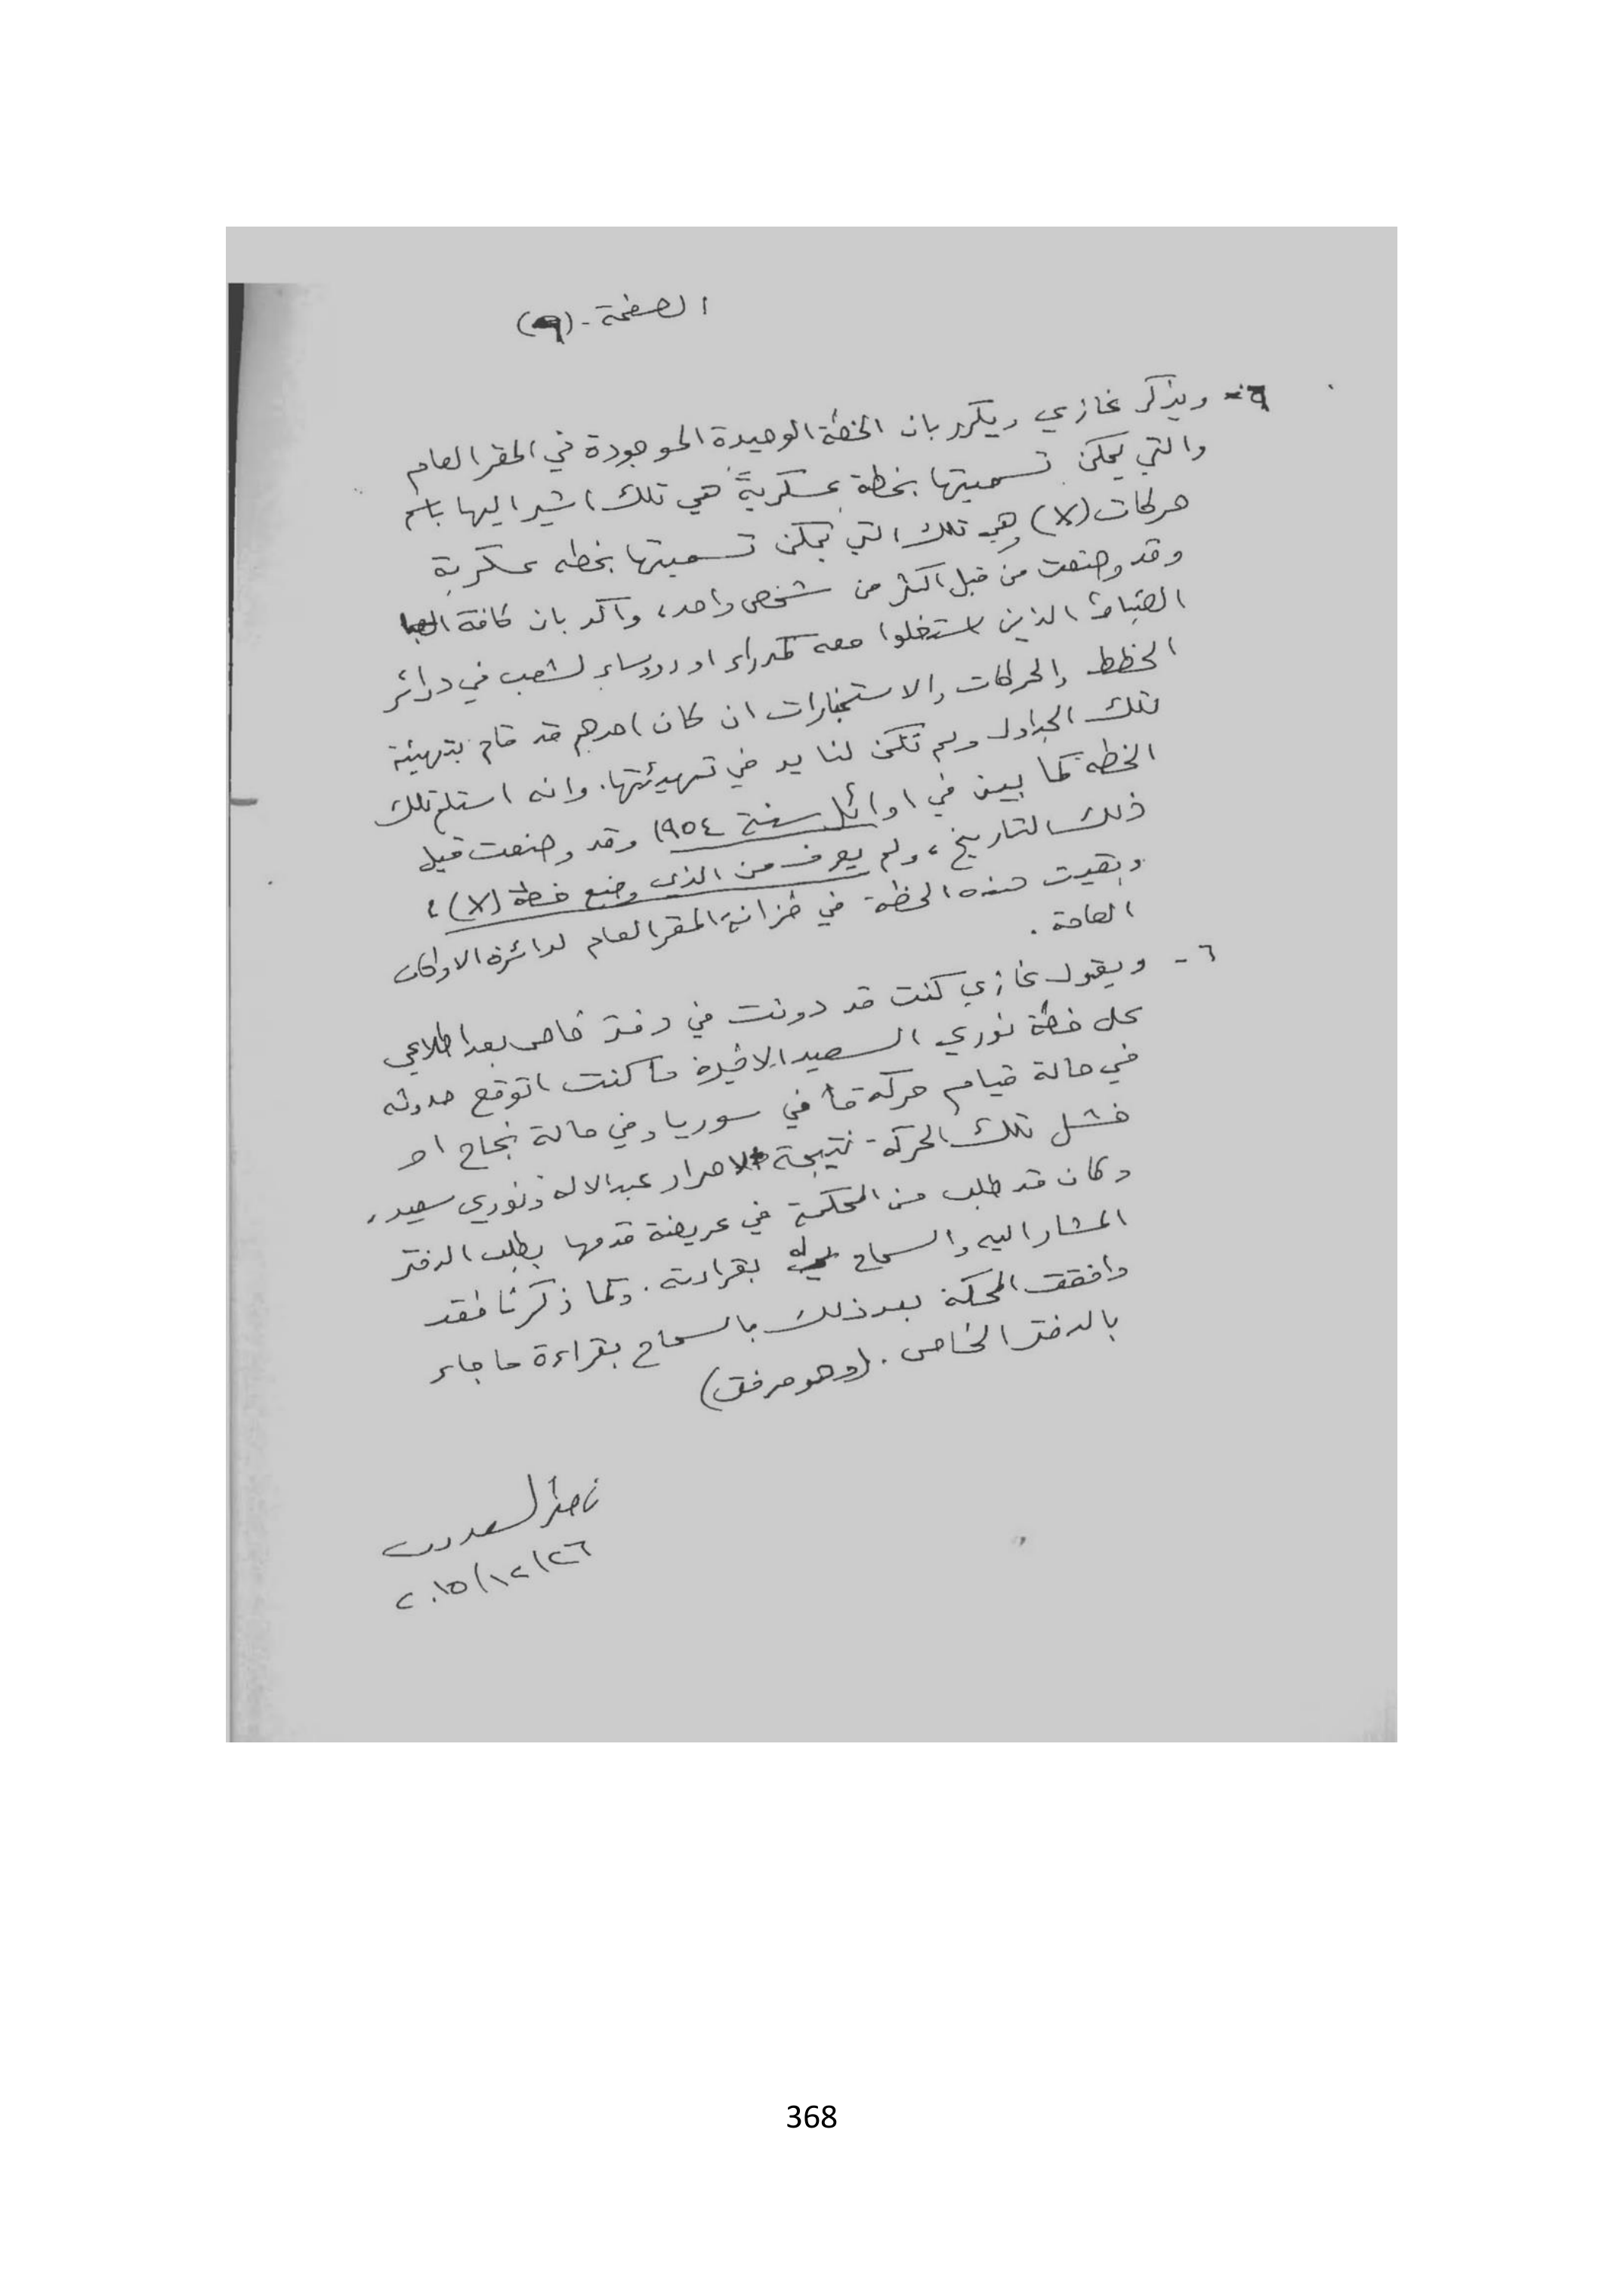 الصفحة - (٩)
٦- ويذكر غازي ويكرر بان الخطة الوحيدة الموجودة في المقر العام
والتي يمكن تسميتها بخطة عسكرية هي تلك اشير اليها باسم
حركات (X) وهي تلك التي يمكن تسميتها بخطه عسكرية
وقد وضعت من قبل اكثر من شخص واحد، واكد بان كافة
الضباط الذين اشتغلوا معه كمدراء او رؤساء لشعب في دوائر
الخطط والحركات والاستخبارات ان كان احدهم قد قام بتهيئة
تلك الجداول ولم تكن لنا يد في تهيئتها. وانه استلم تلك
الخطه كما بين في اوائل سنة ١٩٥٤ وقد وضعت قبل
ذلك التاريخ، ولم يعرف من الذي وضع خطة (X)،
وبقيت هذه الخطة في خزانة المقر العام لدائرة الاركان
العامة.
٦- ويقول غازي كنت قد دونت في دفتر خاص بعد اطلاعي
على خطة نوري السعيد الاخيرة ما كنت اتوقع حدوثه
في حالة قيام حركة ما في سوريا وفي حالة نجاح او
فشل تلك الحركة نتيجة لاصرار عبدالاله ونوري سعيد،
وكان قد طلب من المحكمة في عريضة قدمها بطلب الدفتر
المشار اليه والسماح له بقراءته. وكما ذكرنا فقد
وافقت المحكمة بعد ذلك بالسماح بقراءة ما جاء
بالدفتر الخاص. (وهو مرفق)
٢٠١٥/١٢/٢٦
368